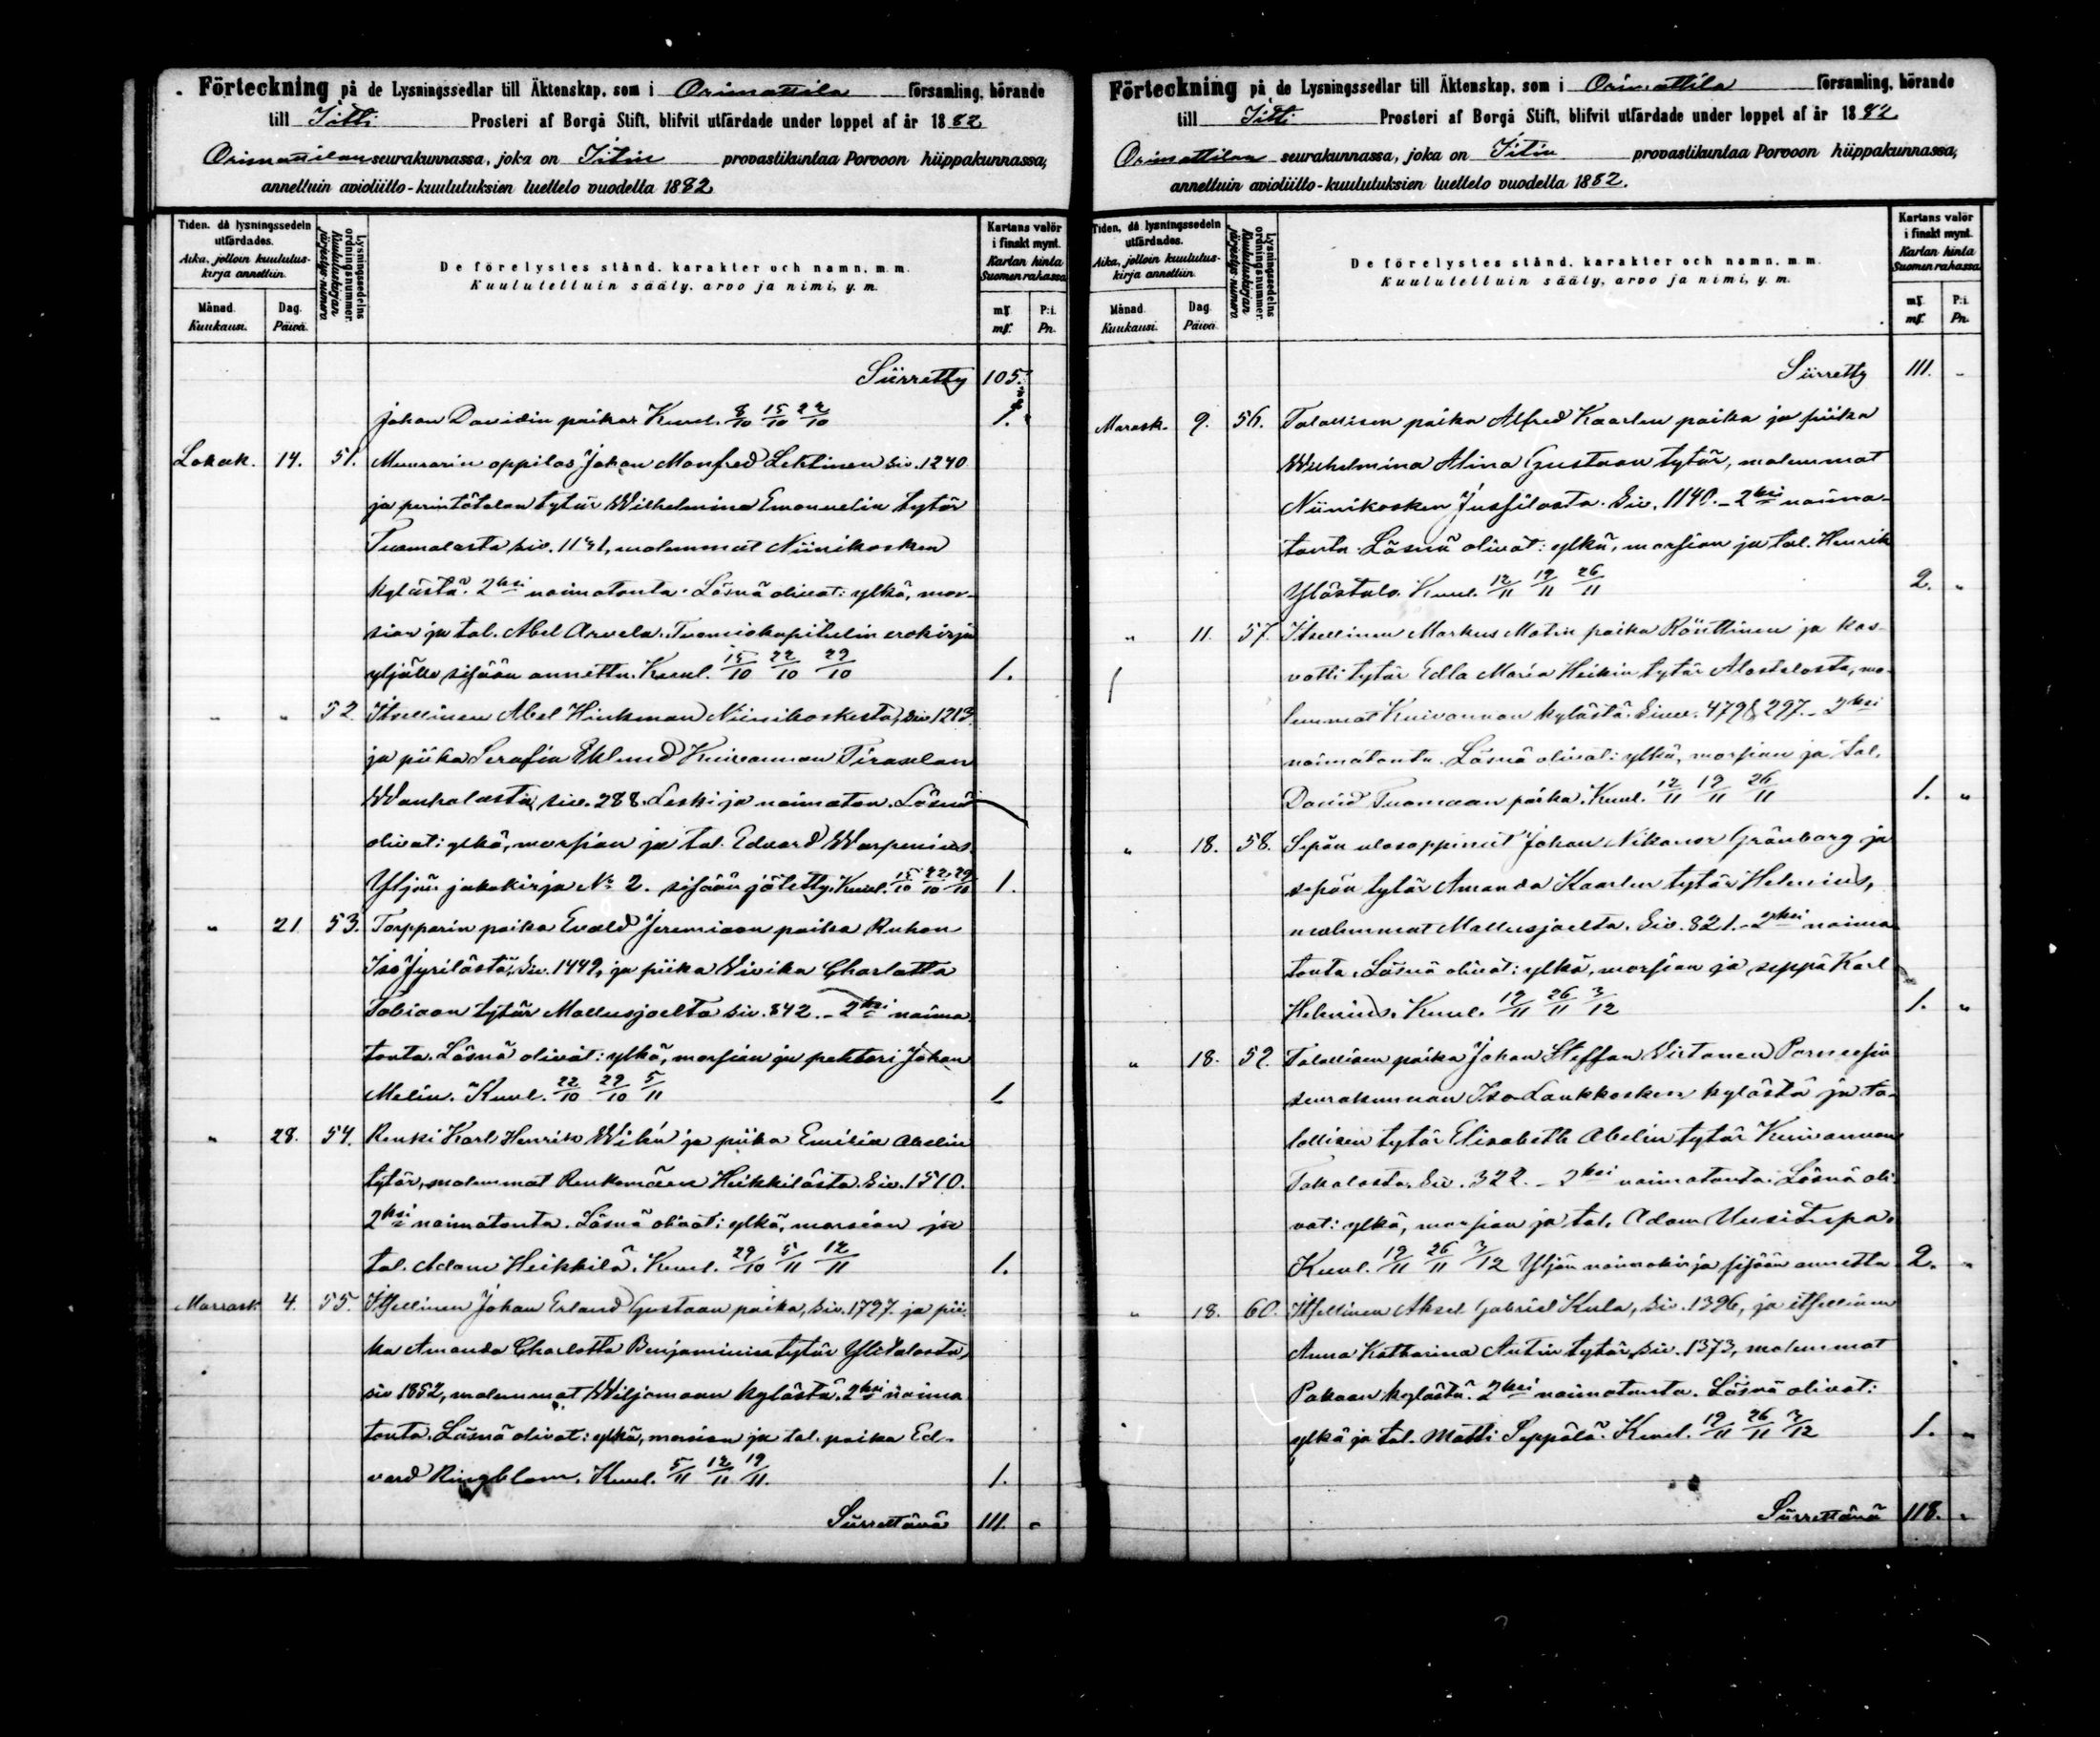 Förteckning på de Lysningssedlar till Äktenskap, som i Orimattila församling, hörande
till Iitti Prosteri af Borgå Stift, blifvit utfärdade under loppet af år 1882
Orimattilan seurakunnassa, joka on Iitin provastikuntaa Porvoon hiippakunnassa,
annettuin avioliitto-kuulutuksien luettelo vuodella 1882
Tiden, då lysningssedeln utfärdades.
Aika, jolloin kuulutuskirja annettiin.
Månad. Kuukausi.
Dag. Päivä.
Lysningssedelns ordningsnummer.
Kuulutuskirjan järjestys-numero
De förelystes stånd, karakter och namn, m. m.
Kuulutettuin sääly, arvo ja nimi, y. m.
Kartans valör i finskt mynt.
Kartan hinta Suomen rahassa
mf. P:i.
mf. Pn.
Siirretty 105.
Johan Davidin poika. Kuul. 8/10 15/10 22/10 1. "
Lokak. 14. 51. Muurarin oppilas Johan Manfred Lehtinen siv. 1240
ja perintötalon tytär Wilhelmina Emanuelin tytär
Tuomalasta siv. 1131, molemmat Niinikosken
kylästä. 2ksi naimatonta. Läsnä olivat: ylkä, mor-
sian ja tal. Abel Arvela. Tuomiokapitulin erokirja
yljälle sisään annettu. Kuul. 15/10 22/10 29/10 1.
" " 52 Itsellinen Abel Hinkman Niinikoskesta, siv. 1213
ja piika Serafia Eklund Kuivannon Tiraslan
Waukalasta, siv. 288. Leski ja naimaton. Läsnä
olivat: ylkä, morsian ja tal. Edvard Warpenius.
Yljän jakokirja No 2. sisään jätetty. Kuul. 15/10 22/10 29/10 1.
" 21 53. Torpparin poika Evald Jeremiaan poika Ruhan
Iso Jyrilästä, siv. 1449, ja piika Wivika Charlotta
Tobiaan tytär Mallusjoelta siv. 842. - 2ksi naima-
tonta. Läsnä olivat: ylkä, morsian ja pehtori Johan
Melin. Kuul. 22/10 29/10 5/11 1
" 28. 54. Renki Karl Henrik Wihn ja piika Emilia Abelin
tytär, molemmat Renkomäen Heikkilästä. Siv. 1510.
2ksi naimatonta. Läsnä olivat: ylkä, morsian ja
tal. Adam Heikkilä. Kuul. 29/10 5/11 12/11 1.
Marrask 4. 55. Itsellinen Johan Erland Gustaan poika, siv. 1797. ja pii-
ka Amanda Charlotta Benjaminin tytär Ylitalosta,
siv 1852, molemmat Wiljamaan kylästä. 2ksi naima
tonta. Läsnä olivat: ylkä, morsian ja tal. poika Ed-
vard Ringblom. Kuul. 5/11 12/11 19/11. 1.
Siirrettävä 111. "
Förteckning på de Lysningssedlar till Äktenskap, som i Orimattila församling, hörande
till Iitti Prosteri af Borgå Stift, blifvit utfärdade under loppet af år 1882
Orimattilan seurakunnassa, joka on Iitin provastikuntaa Porvoon hiippakunnassa,
annettuin avioliitto-kuulutuksien luettelo vuodella 1882.
Tiden, då lysningssedeln utfärdades.
Aika, jolloin kuulutuskirja annettiin.
Månad. Kuukausi.
Dag. Päivä.
Lysningssedelns ordningsnummer.
Kuulutuskirjan järjestys-numero
De förelystes stånd, karakter och namn, m. m.
Kuulutettuin sääly, arvo ja nimi, y. m.
Kartans valör i finskt mynt.
Kartan hinta Suomen rahassa
mf. P:i.
mf. Pn.
Siirretty 111. "
Marask. 9. 56. Talollisen poika Alfred Kaarlen poika ja piika
Wilhelmina Alina Gustaan tytär, molemmat
Niinikosken Jussilasta. Siv. 1140. - 2ksi naima-
tonta. Läsnä olivat: ylkä, morsian ja tal. Henrik
Ylästalo. Kuul. 12/11 19/11 26/11 2. "
" 11. 57. Itsellinen Markus Matin poika Rönttinen ja kas-
vatti tytär Edla Maria Heikin tytär Alastalosta, mo-
lemmat Kuivannon kylästä. Sivv. 479 & 297. - 2ksi
naimatonta. Läsnä olivat: ylkä, morsian ja tal.
David Tuomaan poika. Kuul. 12/11 19/11 26/11 1. "
" 18. 58. Sepän ulosoppinut Johan Nikanor Grönborg ja
sepän tytär Amanda Kaarlen tytär Helenius,
molemmat Mallusjoelta. Siv. 821. - 2ksi naima
tonta. Läsnä olivat: ylkä, morsian ja seppä Karl
Helenius. Kuul. 19/11 26/11 3/12 1. "
" 18. 59. Talollisen poika Johan Steffan Wirtanen Porneesin
seurakunnan Iso-Laukkosken kylästä ja ta-
lollisen tytär Elisabeth Abelin tytär Kuivannon
Takalasta. Siv. 322. - 2ksi naimatonta. Läsnä oli-
vat: ylkä, morsian ja tal. Adam Uusitupa.
Kuul. 19/11 26/11 3/12 Yljän naimakirja sisään annettu 2. "
" 18. 60. Itsellinen Aksel Gabriel Kula, siv. 1396, ja itsellinen
Anna Katharina Antin tytär, siv. 1373, molemmat
Pakaan kylästä. 2ksi naimatonta. Läsnä olivat:
ylkä ja tal. Matti Seppälä. Kuul. 19/11 26/11 3/12 1. "
Siirrettävä 118. "